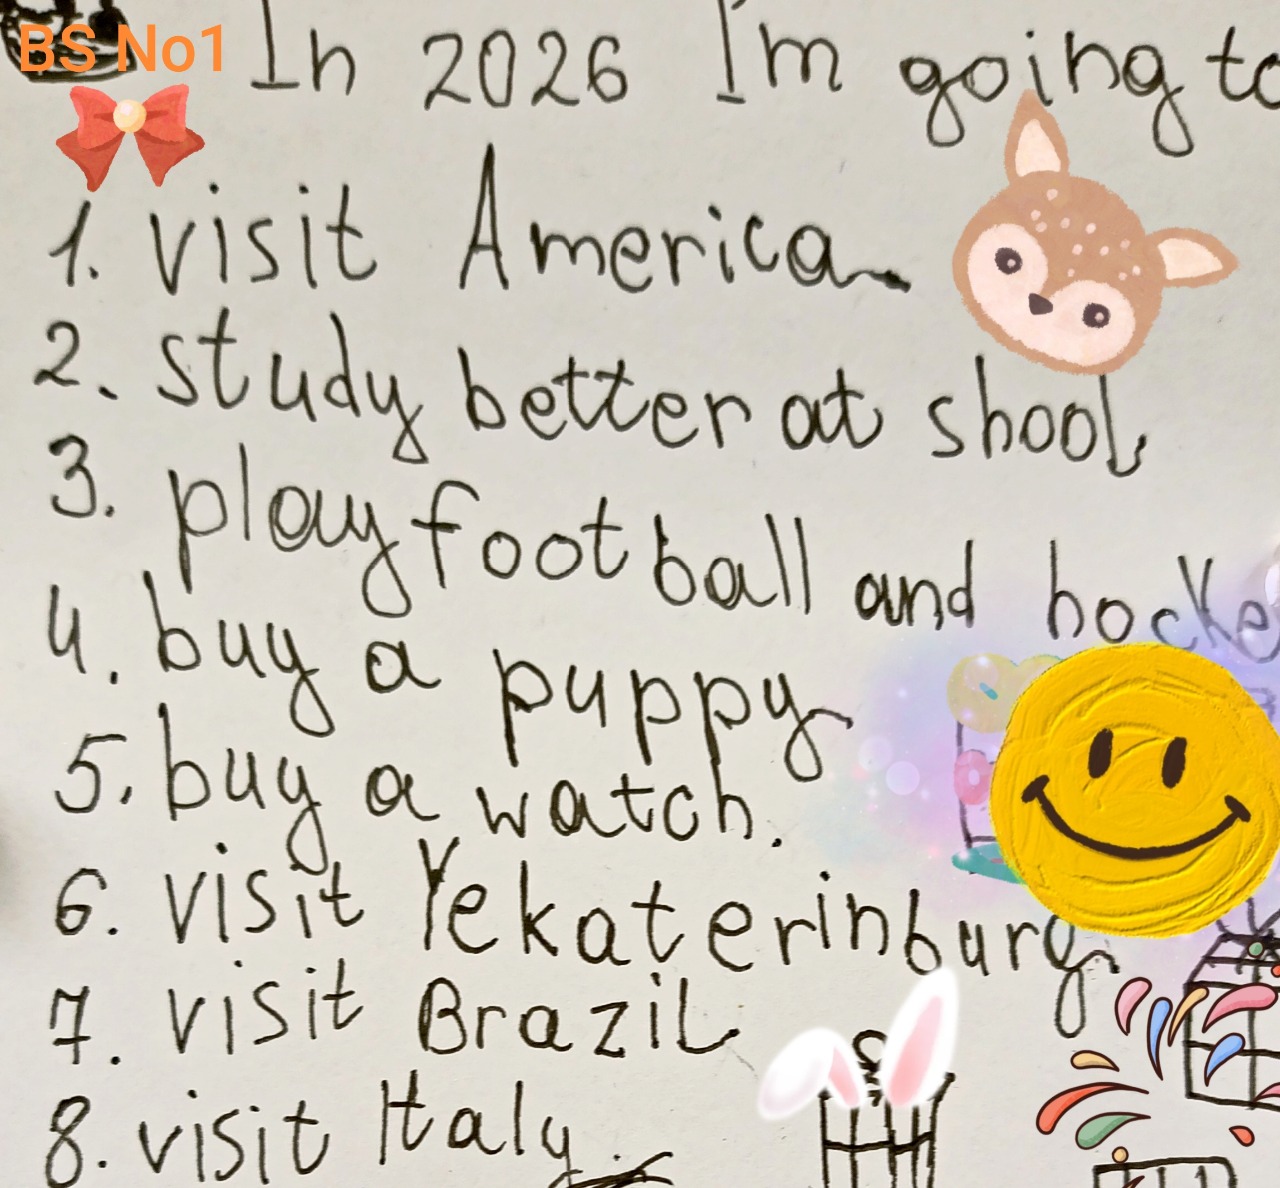 BS No1
In 2026 I'm going to
1. visit America
2. study better at shool
3. play football and hocke
4. buy a puppy
5. buy a watch.
6. visit Yekaterinburg
7. visit Brazil
8. visit Italy